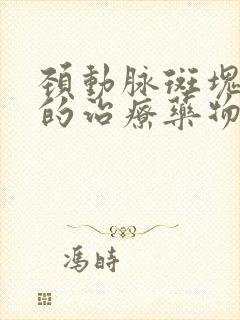 頚動脉斑塊
的治療藥物
馮時